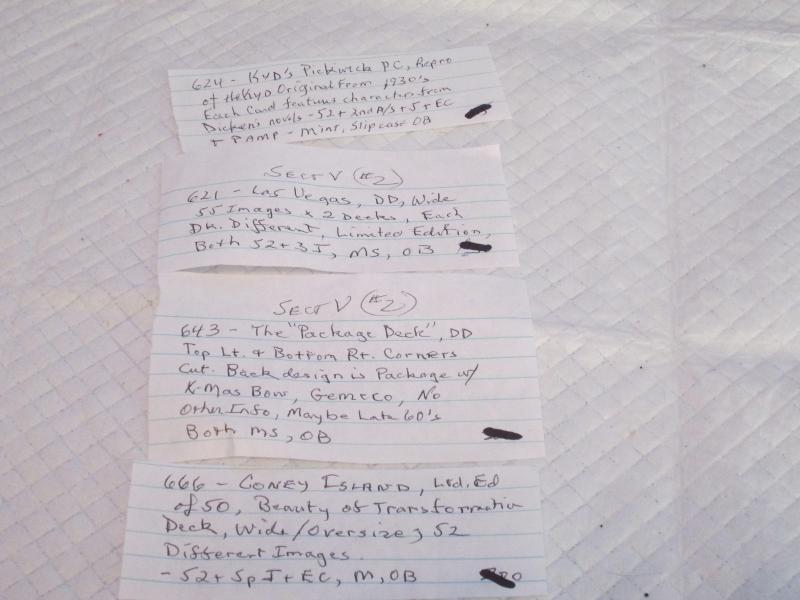 624 - KYD's Pickwick PC, Repro
of the Kyd Original From 1930's
Each Card features characters from
Dicken's novels - 52 + 2nd A/S + J + EC
+ PAMP - Mint, Slipcase OB
Sect V (#2)
621 - Las Vegas, DD, Wide
55 Images x 2 Decks, Each
Dk. Different, Limited Edition,
Both 52 + 3 J, MS, OB
Sect V (#2)
643 - The "Package Deck", DD
Top Lt. & Bottom Rt. Corners
Cut. Back design is Package w/
X-Mas Bow, Gemeco, No
Other Info, Maybe Late 60's
Both MS, OB
666 - CONEY ISLAND, Ltd. Ed
of 50, Beauty of Transformation
Deck, Wide/Oversize, 52
Different Images
- 52 + Sp J + EC, M, OB